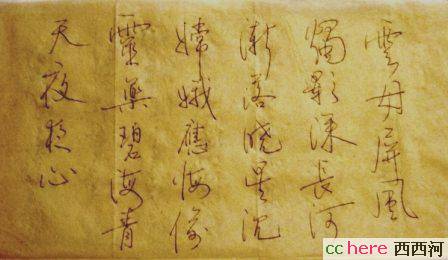 雲母屏風
燭影深長河
漸落晓星沉
嫦娥應悔偷
靈藥碧海青
天夜夜心
cchere 西西河